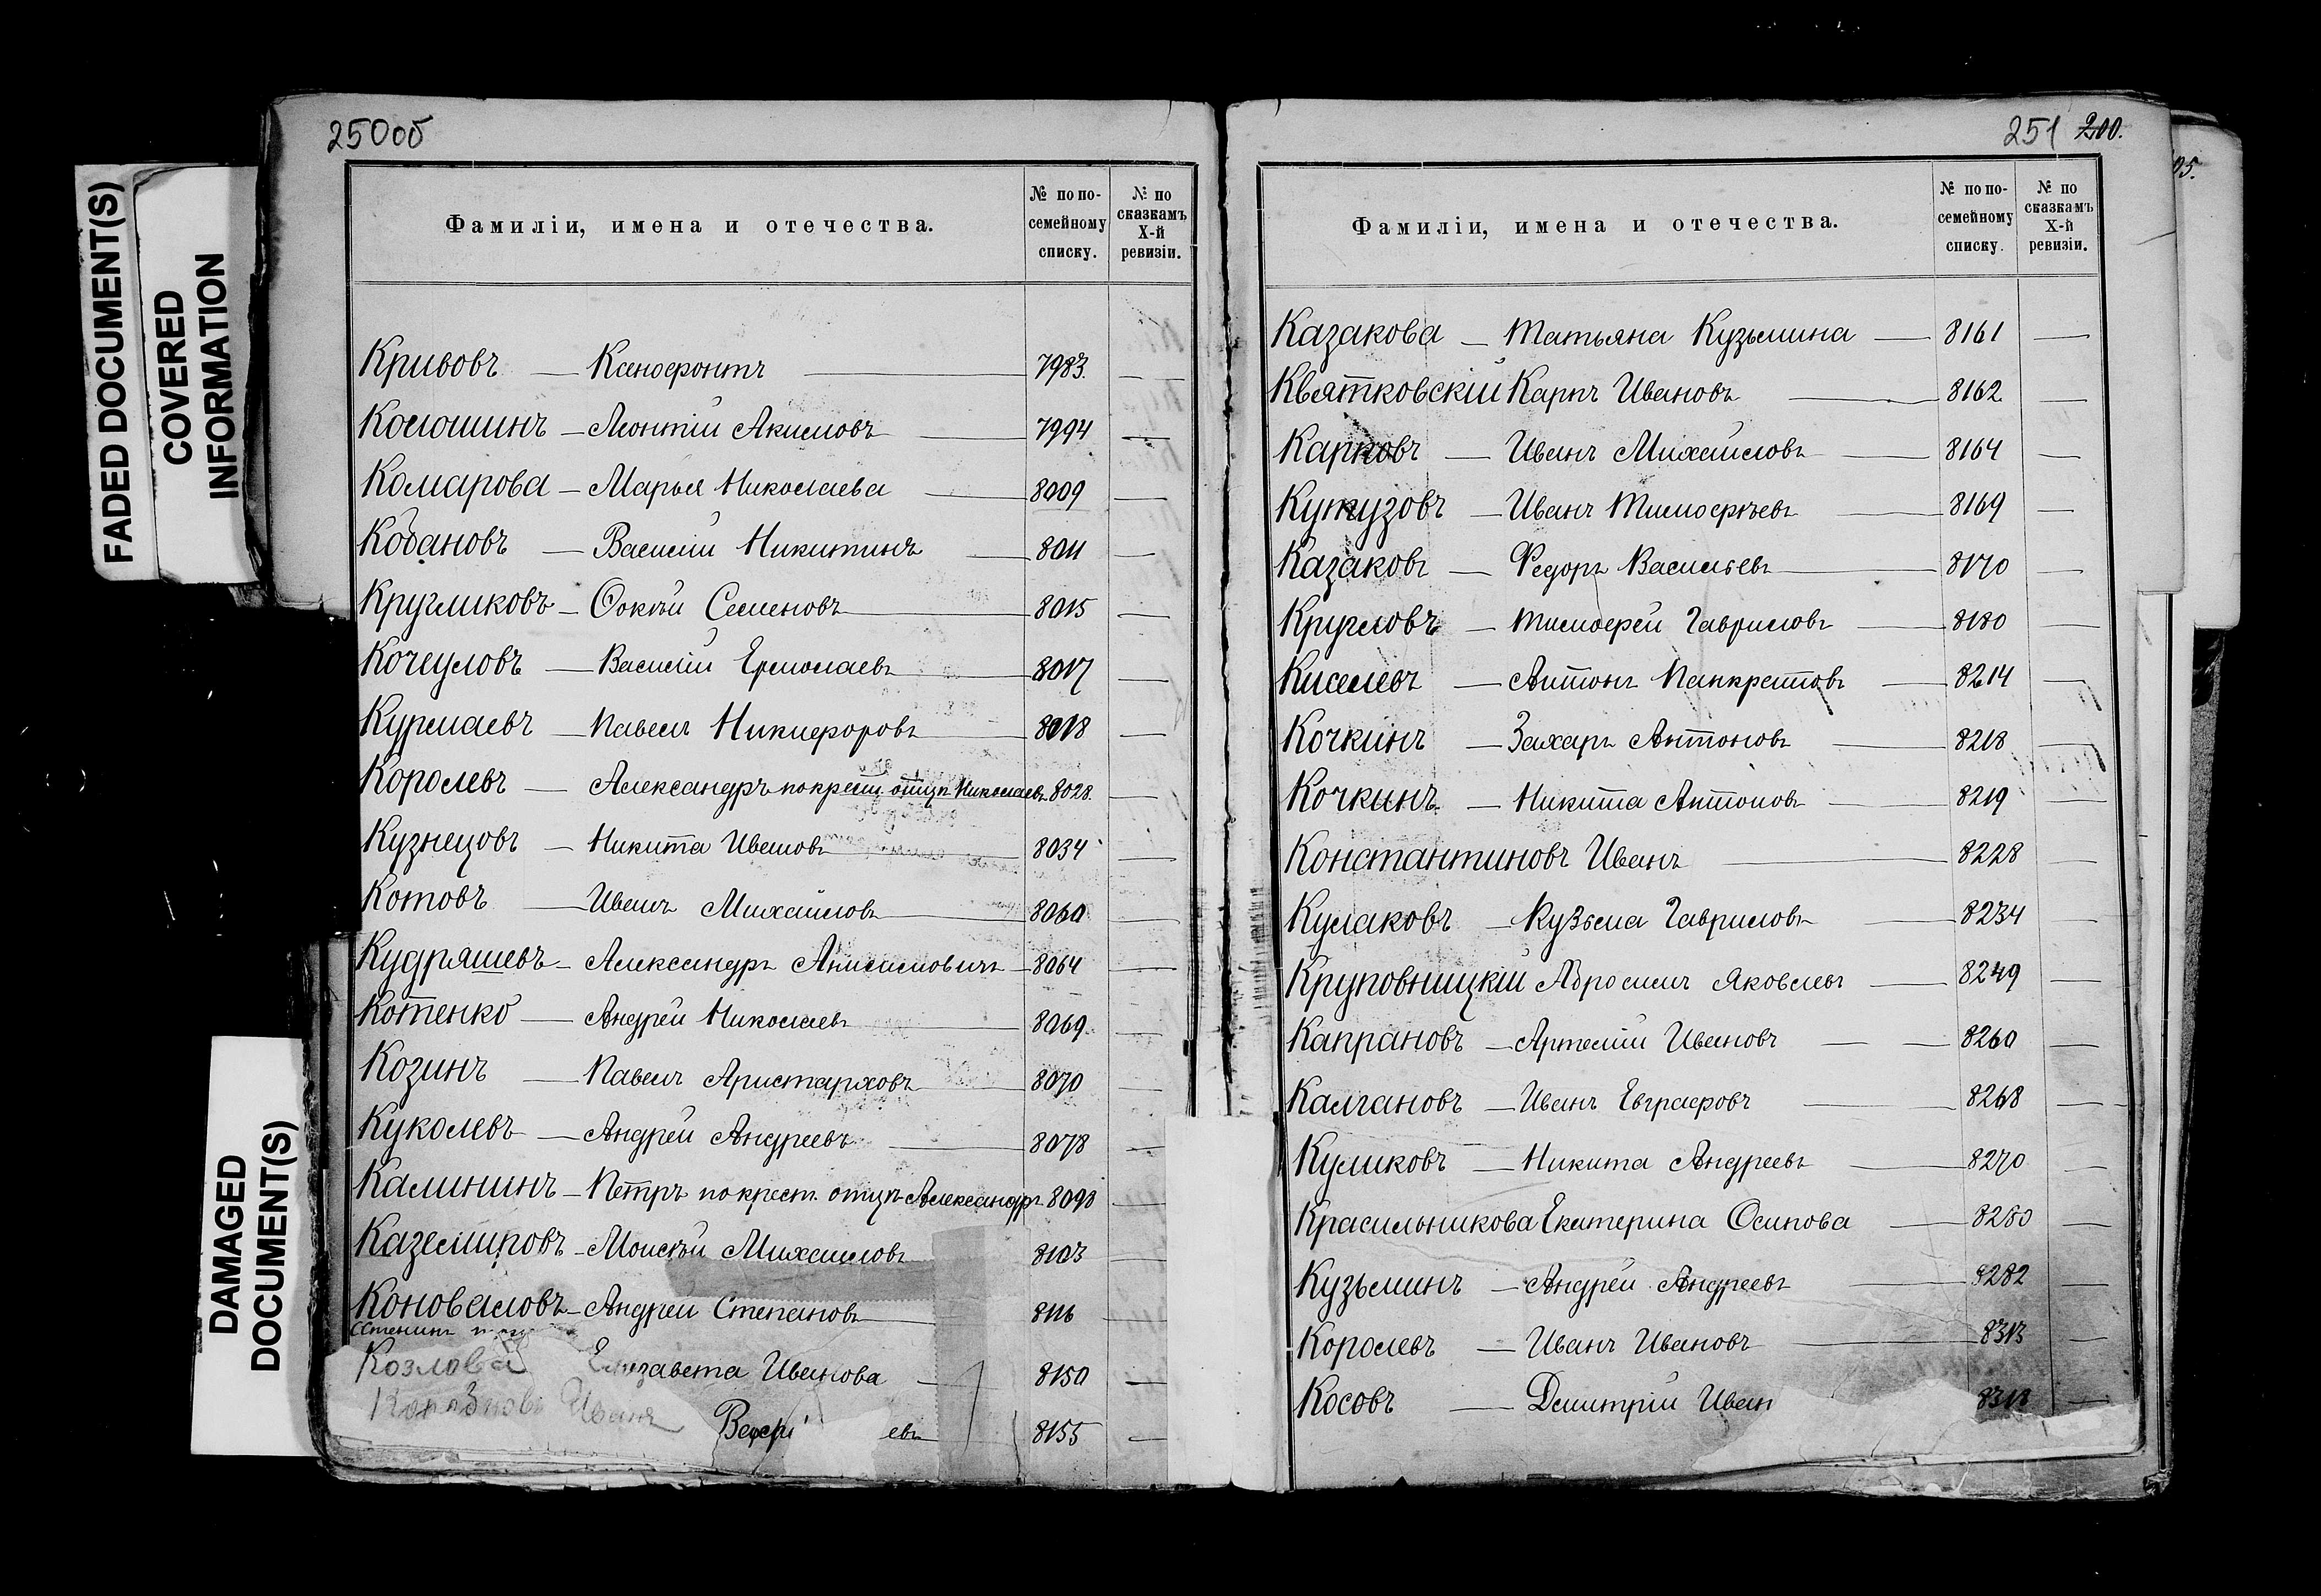 FADED DOCUMENT(S)
COVERED
INFORMATION
DAMAGED
DOCUMENT(S)
250об
Фамиліи, имена и отечества.
№ по по-
семейному
списку.
№ по
сказкамъ
X-й
ревизіи.
Кривовъ — Ксенофонтъ — 7983. —
Колюшинъ — Леонтій Акимовъ — 7994 —
Комарова — Марья Николаева — 8009 —
Кобановъ — Василій Никитинъ — 8011 —
Кругликовъ — Фокѣй Семеновъ — 8015 —
Кочеуловъ — Василій Ермолаевъ — 8017 —
Курмаевъ — Павелъ Никифоровъ — 8018 —
Королевъ — Александръ по крест. отцу Николаевъ 8028. —
Кузнецовъ — Никита Ивановъ — 8034 —
Котовъ — Иванъ Михайловъ — 8060 —
Кудряшевъ — Александръ Анисимовичъ — 8064 —
Котенко — Андрей Николаевъ — 8069. —
Козинъ — Павелъ Аристарховъ — 8070 —
Куколевъ — Андрей Андреевъ — 8078 —
Калининъ — Петръ по крест. отцу Александръ 8093 —
Каземировъ — Моисѣй Михаиловъ 8103 —
Коноваловъ — Андрей Степановъ — 8116 —
Козлова Елизавета Иванова — 8150 —
Иванъ евъ 8155 —
251 200.
Фамиліи, имена и отечества.
№ по по-
семейному
списку.
№ по
сказкамъ
X-й
ревизіи.
Казакова — Татьяна Кузьмина — 8161 —
Квятковскій Карпъ Ивановъ — 8162 —
Карповъ — Иванъ Михайловъ — 8164 —
Кутузовъ — Иванъ Тимофѣевъ — 8169 —
Казаковъ — Федоръ Васильевъ — 8170 —
Кругловъ — Тимофей Гавриловъ — 8180 —
Киселевъ — Антонъ Панкратовъ — 8214 —
Кочкинъ — Захаръ Антоновъ — 8218 —
Кочкинъ — Никита Антоновъ — 8219 —
Константиновъ Иванъ — 8228 —
Кулаковъ — Кузьма Гавриловъ — 8234 —
Круповницкій Абросимъ Яковлевъ — 8249 —
Капрановъ — Артемій Ивановъ — — 8260 —
Калгановъ — Иванъ Евграфовъ — 8268 —
Куликовъ — Никита Андреевъ — 8270 —
Красильникова Екатерина Осипова — 8280 —
Кузьминъ — Андрей Андреевъ — 8282 —
Королевъ — Иванъ Ивановъ — 8313 —
Косовъ — Дмитрій Иван 8318 —